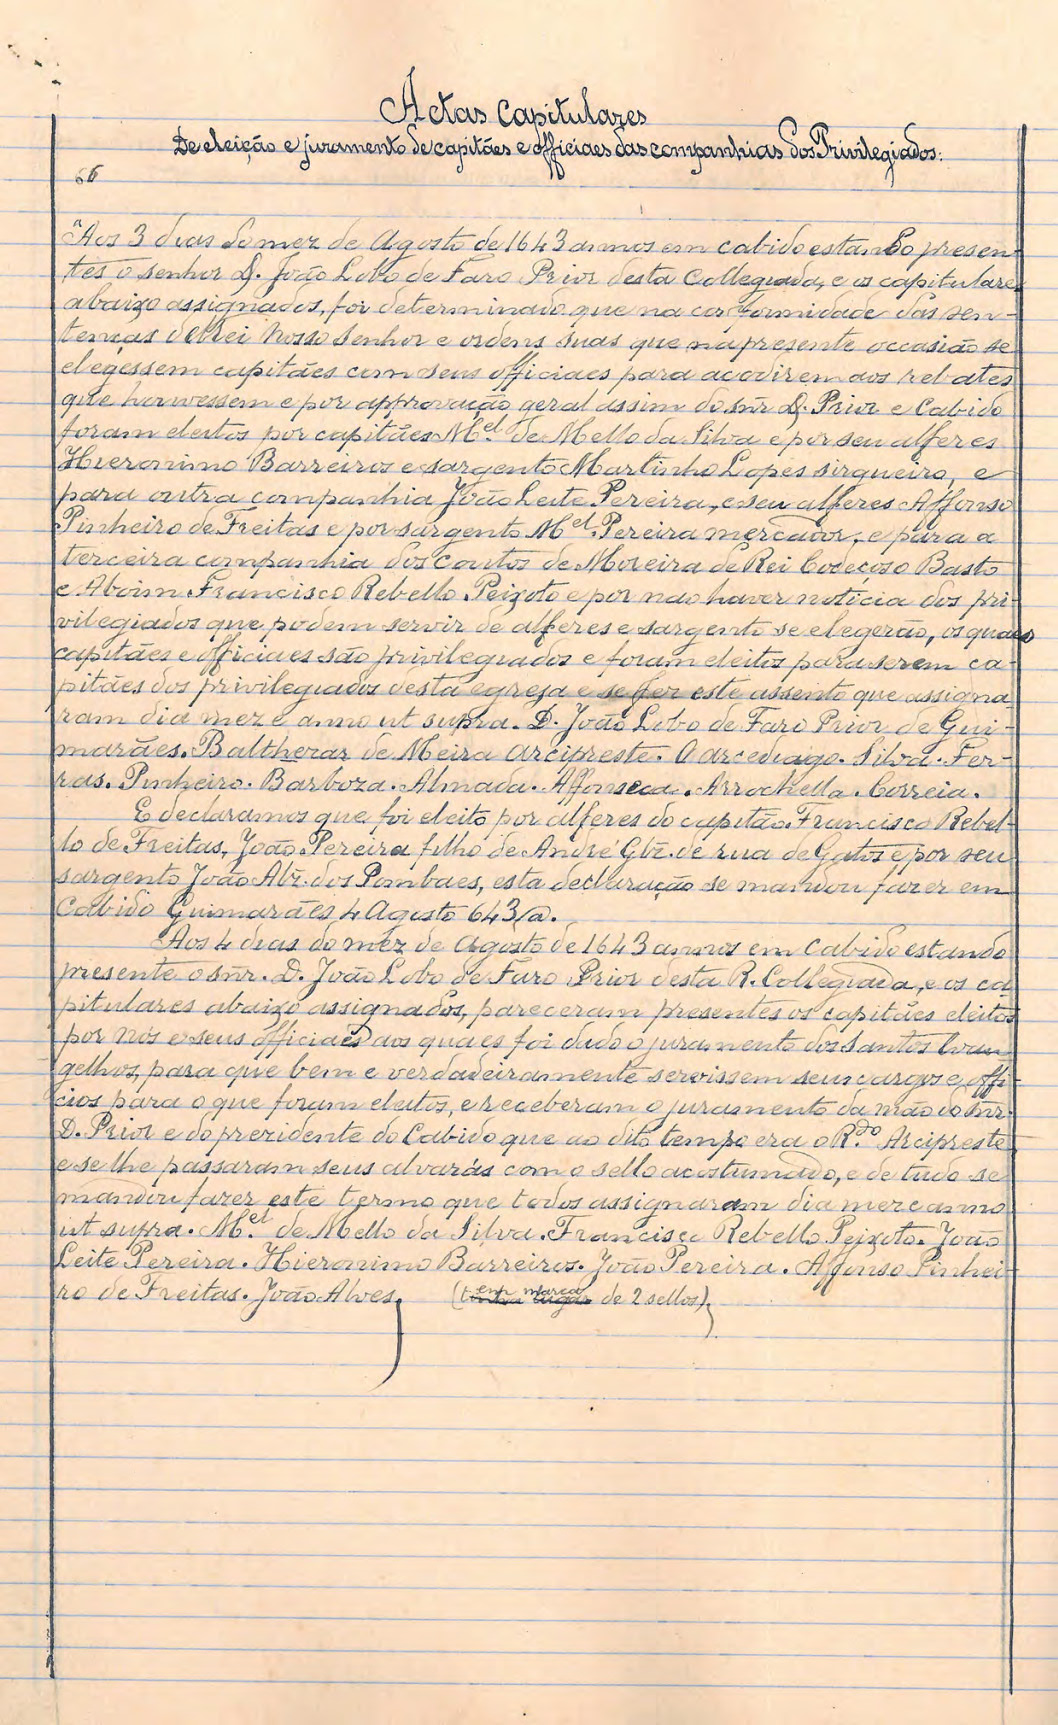 Actas Capitulares
De eleição e juramento de capitães e officiaes das companhias dos Privilegiados.
66
"Aos 3 dias do mez de Agosto de 1643 annos em cabido estando presen-
tes o senhor D. João Lobo de Faro Prior desta Collegiada, e os capitulares
abaixo assignados, foi determinado que na conformidade das sen-
tenças delRei Nosso Senhor e ordens suas que na presente occasião se
elegessem capitães com seus officiaes para acodirem aos rebates
que houvessem e por approvação geral assim do snr D. Prior e Cabido
foram eleitos por capitães M.el de Mello da Silva e por seu alferes
Hieronimo Barreiros e sargento Martinho Lopes sirgueiro, e
para outra companhia João Leite Pereira, e seu alferes Affonso
Pinheiro de Freitas e por sargento M.el Pereira mercador, e para a
terceira companhia dos coutos de Moreira de Rei Codeçoso Basto
e Aboim Francisco Rebello Peixoto e por nao haver noticia dos pri-
vilegiados que podem servir de alferes e sargento se elegerão, os quaes
capitães e officiaes são privilegiados e foram eleitos para serem ca-
pitães dos privilegiados desta egreja e se fez este assento que assigna-
ram dia mez e anno ut supra. D. João Lobo de Faro Prior de Gui-
marães. Balthezar de Meira Arcipreste. O arcediago. Silva. Fer-
ras. Pinheiro. Barboza. Almada. Affonseca. Arrochella. Correia.
E declaramos que foi eleito por alferes do capitão Francisco Rebel-
lo de Freitas, João Pereira filho de André Glz. de rua de Gatos e por seu
sargento João Alz. dos Pombaes, esta declaração se mandou fazer em
Cabido Guimarães 4 Agosto 643/a.
Aos 4 dias do mez de Agosto de 1643 annos em Cabido estando
presente o snr. D. João Lobo de Faro Prior desta R. Collegiada, e os ca-
pitulares abaixo assignados, pareceram presentes os capitães eleitos
por nós e seus officiaes aos quaes foi dado o juramento dos Santos Evan-
gelhos, para que bem e verdadeiramente servissem seus cargos e offi-
cios para o que foram eleitos, e receberam o juramento da mão do snr.
D. Prior e do prezidente do Cabido que ao dito tempo era o R.do Arcipreste
e se lhe passaram seus alvarás com o sello acostumado, e de tudo se
mandou fazer este termo que todos assignaram dia mez e anno
ut supra. M.el de Mello da Silva. Francisco Rebello Peixoto. João
Leite Pereira. Hieronimo Barreiros. João Pereira. Affonso Pinhei-
ro de Freitas. João Alves. (tem marca de 2 sellos)